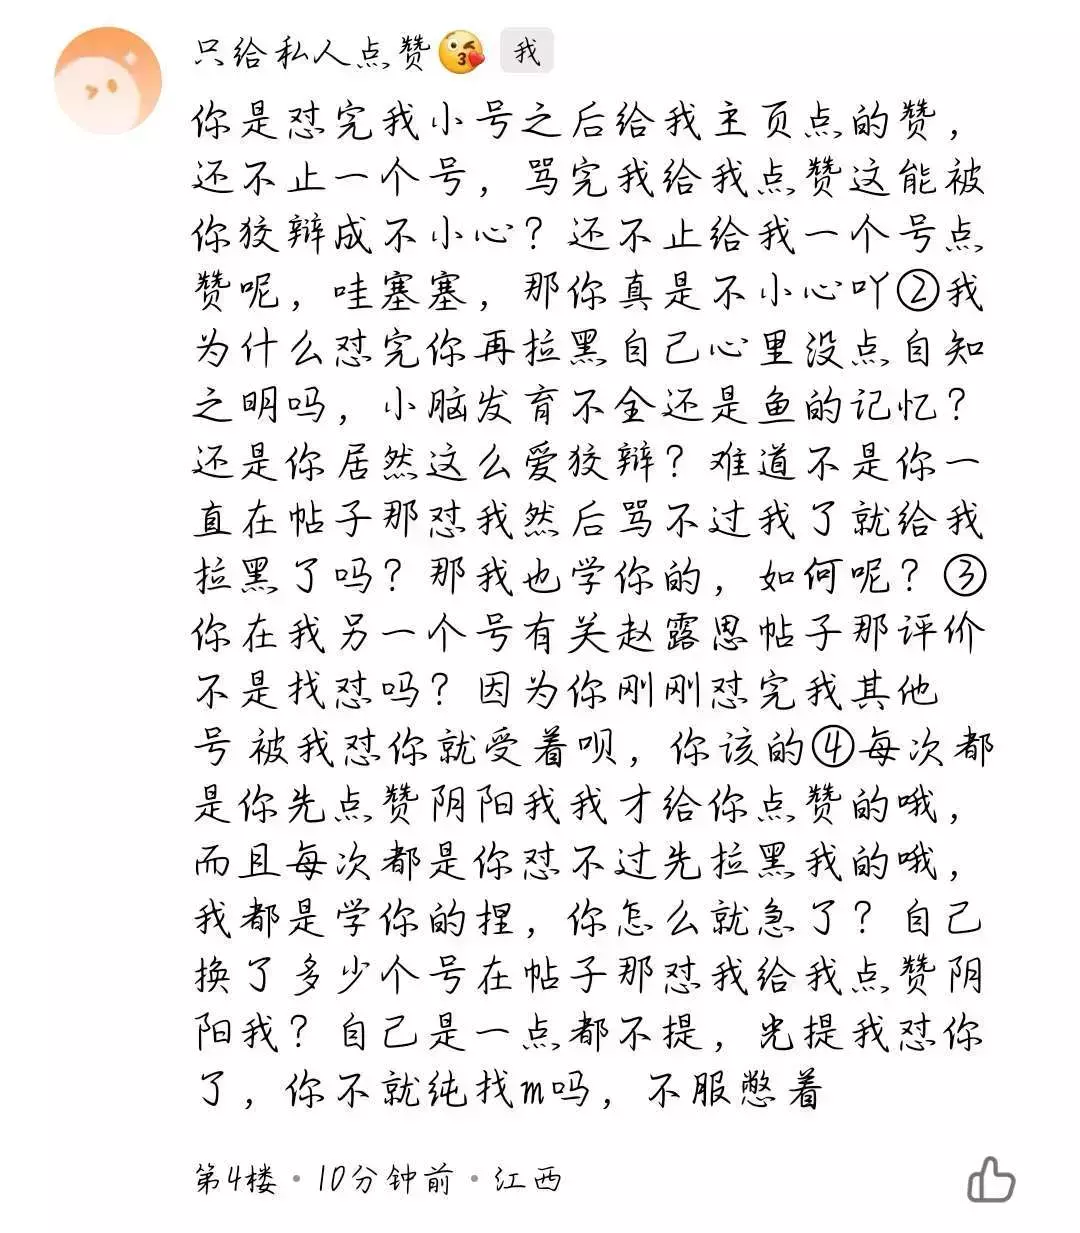 只给私人点赞😘 我
你是怼完我小号之后给我主页点的赞，
还不止一个号，骂完我给我点赞这能被
你狡辩成不小心？还不止给我一个号点
赞呢，哇塞塞，那你真是不小心吖②我
为什么怼完你再拉黑自己心里没点自知
之明吗，小脑发育不全还是鱼的记忆？
还是你居然这么爱狡辩？难道不是你一
直在帖子那怼我然后骂不过我了就给我
拉黑了吗？那我也学你的，如何呢？③
你在我另一个号有关赵露思帖子那评价
不是找怼吗？因为你刚刚怼完我其他
号 被我怼你就受着呗，你该的④每次都
是你先点赞阴阳我我才给你点赞的哦，
而且每次都是你怼不过先拉黑我的哦，
我都是学你的捏，你怎么就急了？自己
换了多少个号在帖子那怼我给我点赞阴
阳我？自己是一点都不提，光提我怼你
了，你不就纯找m吗，不服憋着
第4楼·10分钟前·江西